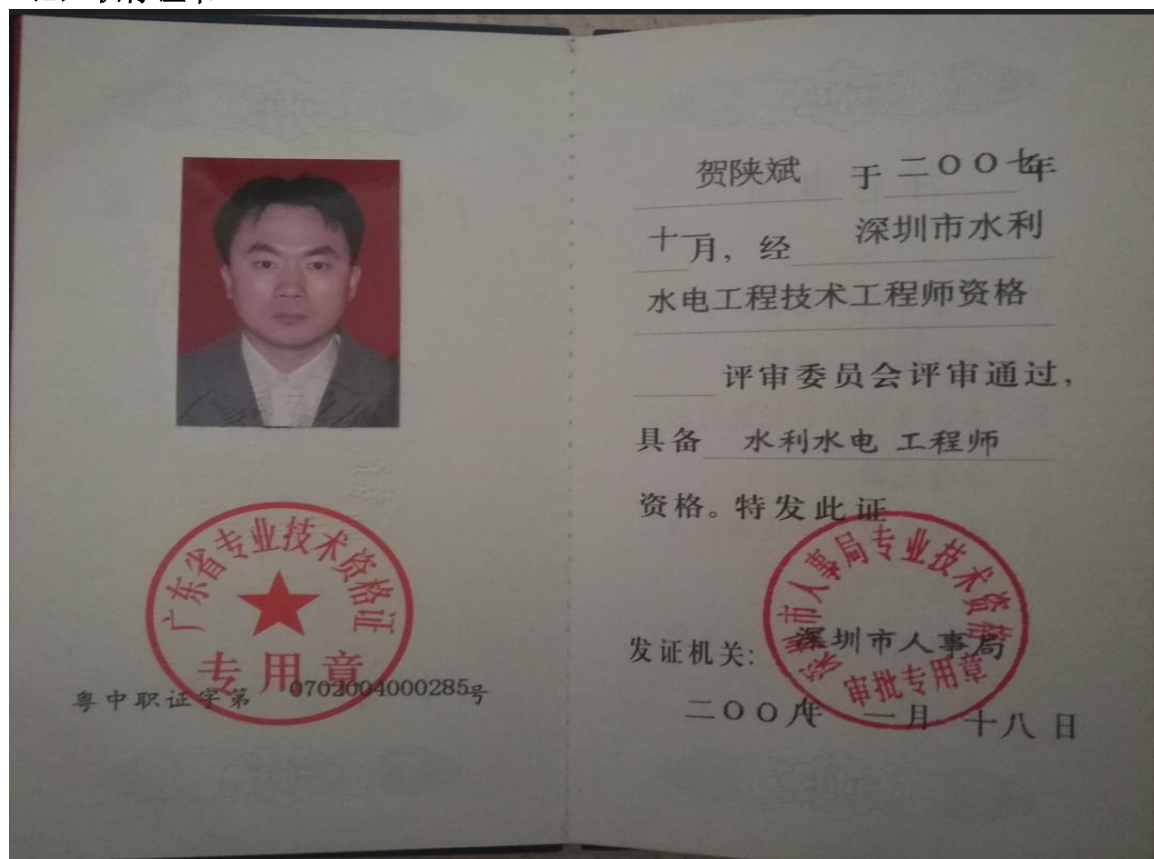 广东省专业技术资格证
专用章
粤中职证字第0702004000285号
贺陕斌 于二〇〇七年
十一月，经 深圳市水利
水电工程技术工程师资格
评审委员会评审通过，
具备 水利水电 工程师
资格。特发此证
深圳市人事局专业技术资格
审批专用章
发证机关：深圳市人事局
二〇〇八年 一月 十八日